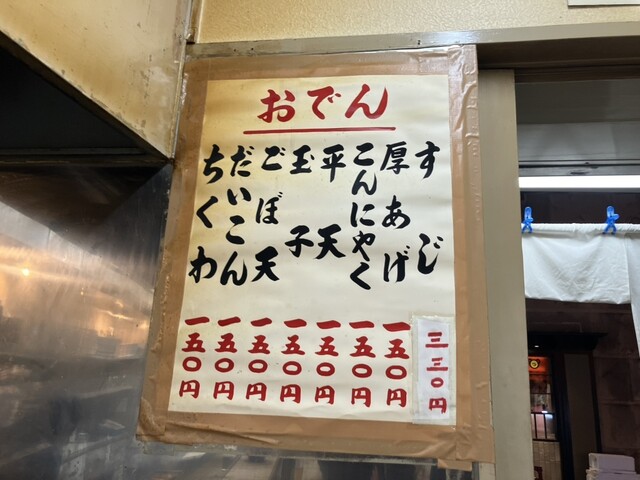 おでん
すじ 三三〇円
厚あげ 一五〇円
こんにゃく 一五〇円
平天 一五〇円
玉子 一五〇円
ごぼ天 一五〇円
だいこん 一五〇円
ちくわ 一五〇円